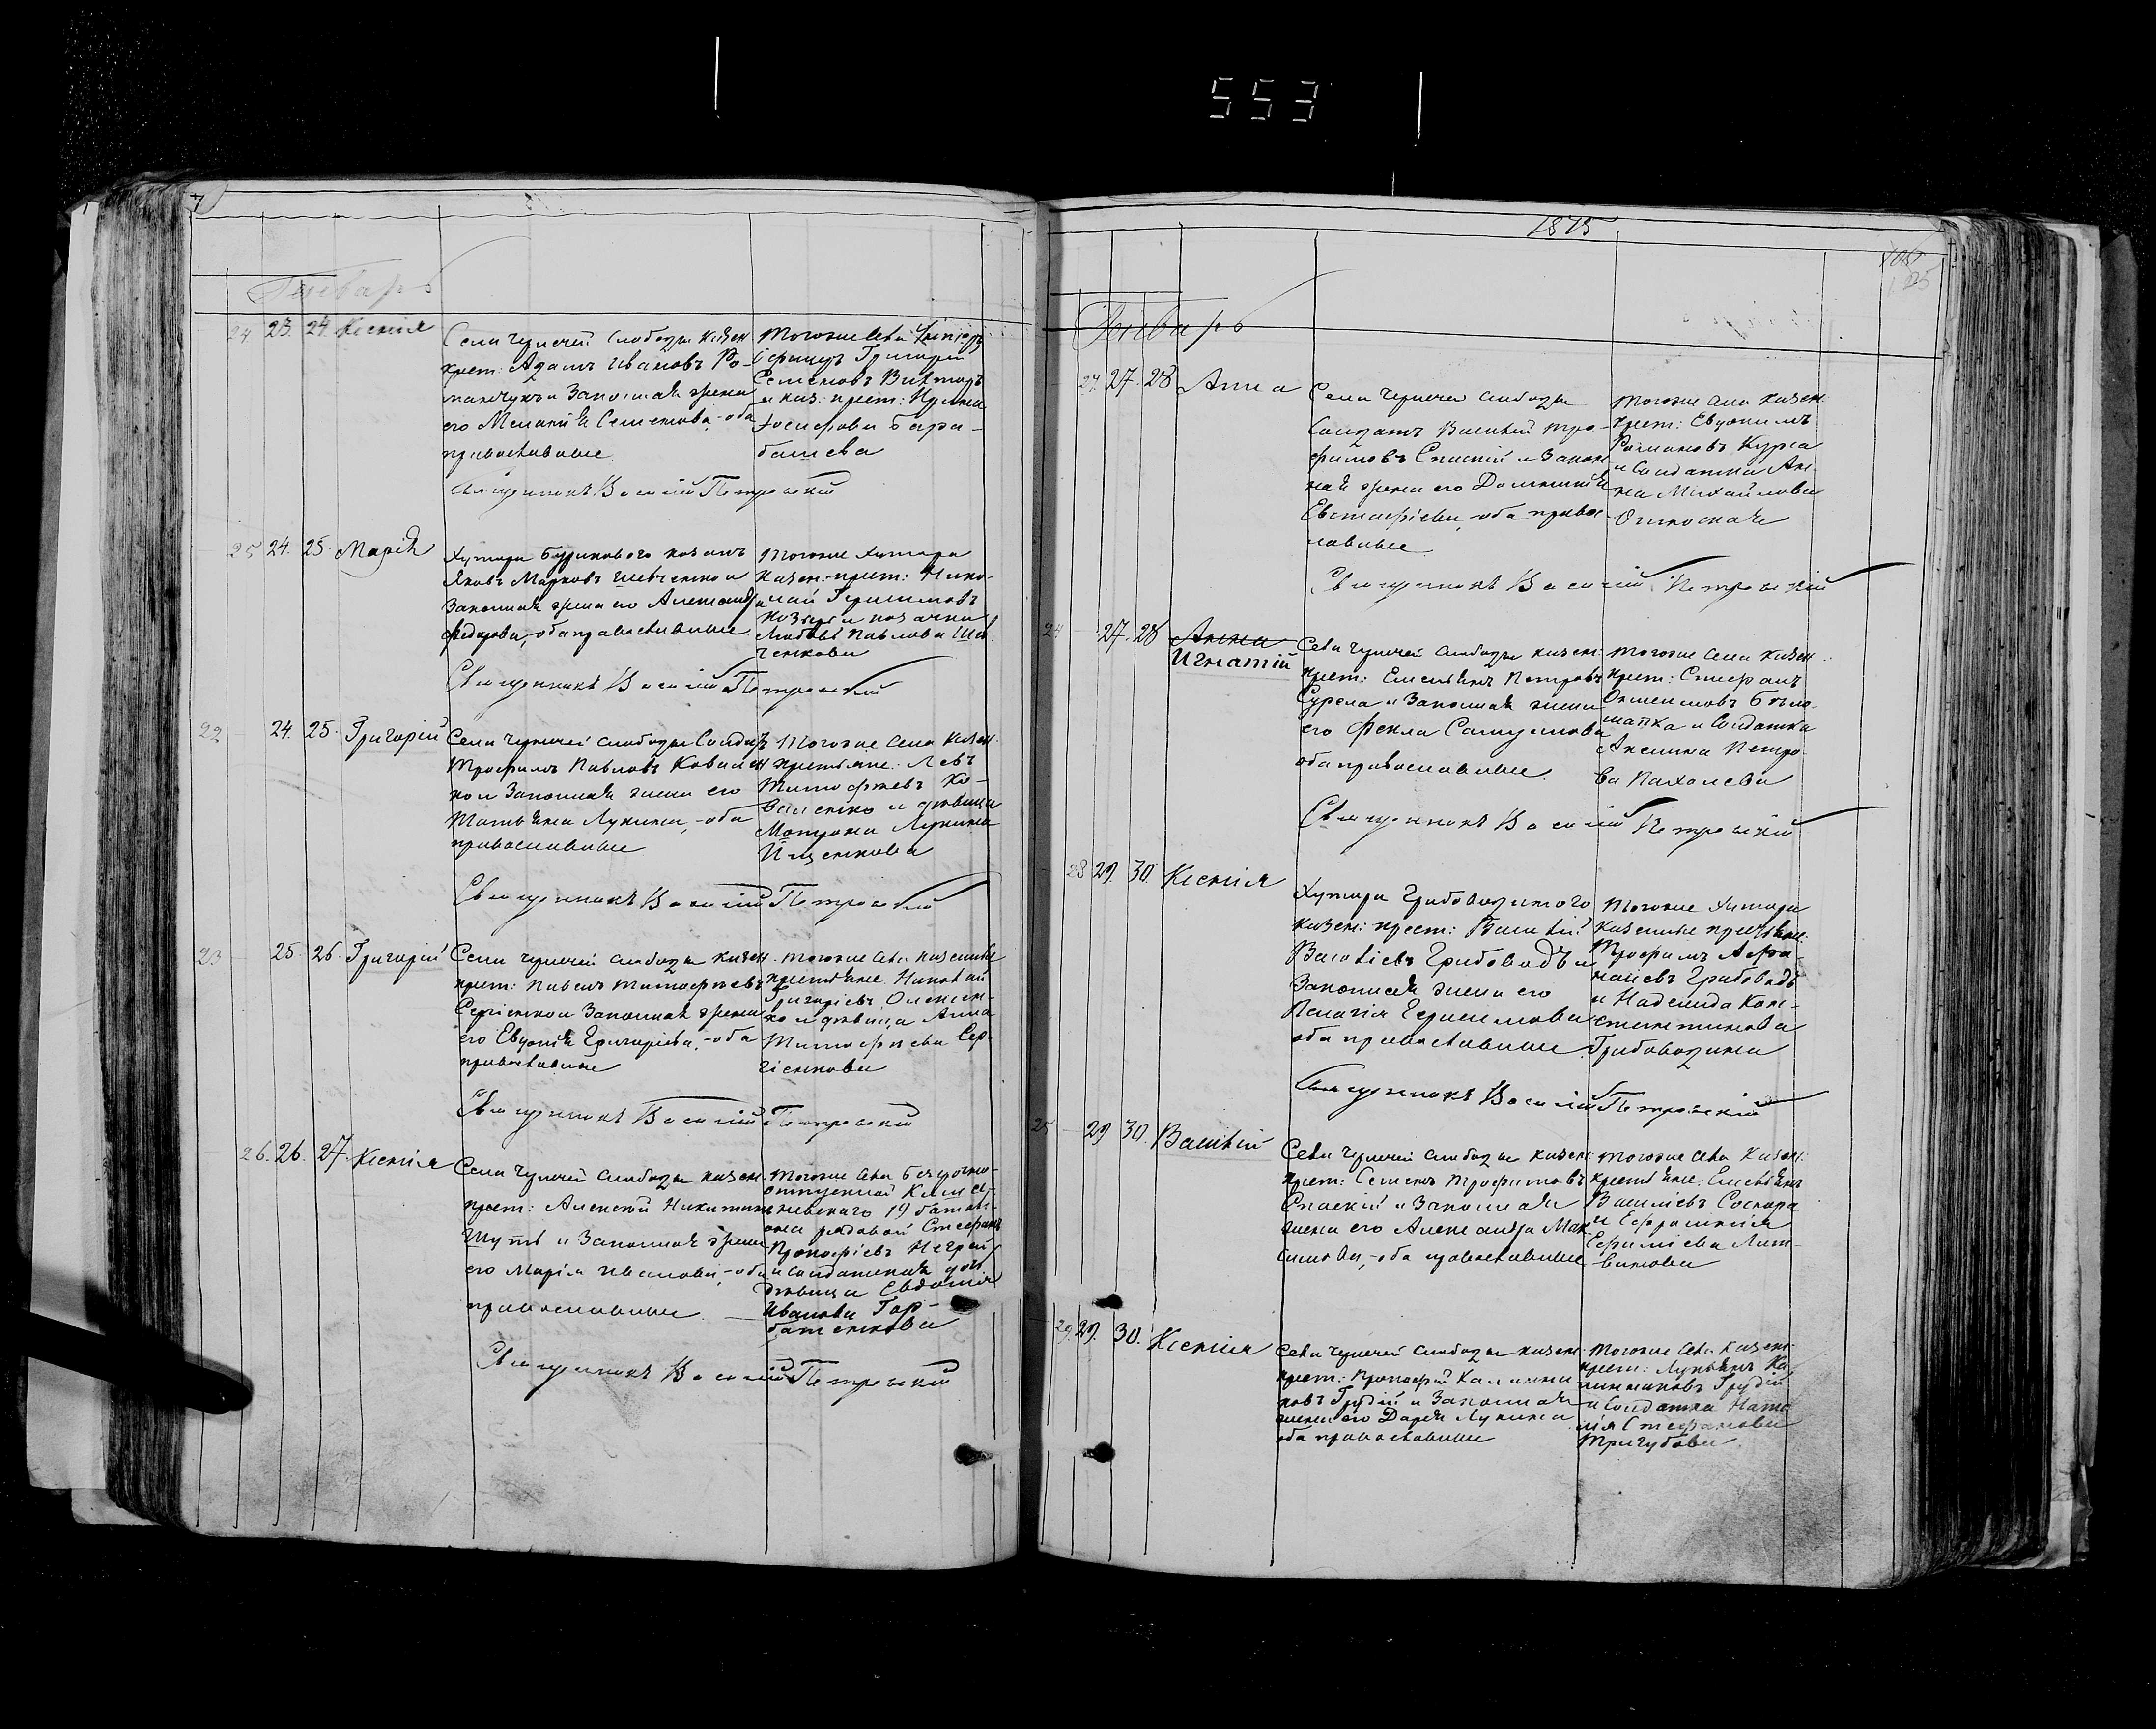 553
7
Генварь
24 23. 24. Ксенія
Села Чернечей Слободы казен
крест: Адамъ Ивановъ Ро-
манчукъ и Законная жена
его Меланія Семенова, -оба
православные.
Тогоже Села
Григорій
Семеновъ Викторъ
и каз: крест:
Іосифова Бара-
башева
Священникъ Василій Петровскій
25 24. 25. Марія
Хутора Бурикового козакъ
Яковъ Марковъ Шевченко и
Законная жена его Александра
Федорова, оба православные
Тогоже Хутора
казен: крест: Нико-
лай Герасимовъ
Козырь и козачка
Любовь Павлова Шев
ченкова
Священникъ Василій Петровскій
22 24. 25. Григорій
Села Чернечей Слободы Солдатъ
Трофимъ Павловъ Ковален
ко и Законная жена его
Татьяна Лукина, -оба
православные
Тогоже Села казен.
крестьяне: Левъ
Тимофѣевъ Ко-
валенко и дѣвица
Матрона Лукина
Ищенкова
Священникъ Василій Петровскій
23 25. 26. Григорій
Села Чернечей Слободы казен
крест: Павелъ Тимофѣевъ
Сергіенко и Законная жена
его Евдокія Григоріева, -оба
православные
Тогоже Села казенные
крестьяне Николай
Григоріевъ Олексен-
ко и дѣвица Анна
Тимофѣева Сер-
гіенкова
Священникъ Василій Петровскій
26. 26. 27. Ксенія
Села Чернечей Слободы казен
крест: Алексѣй Никитинъ
Шуть и Законная жена
его Марія Иванова, -оба
православные
Тогоже Села безсрочно-
отпускной
19 баталі-
она рядовой Стефанъ
Прокофіевъ Негрей
и солдатская дочь
дѣвица Евдокія
Иванова Гор-
батенкова
Священникъ Василій Петровскій
1875
125
Генварь
27. 27. 28 Анна
Села Чернечей Слободы
Солдатъ Василій Тро-
фимовъ Спаскій и Закон
ная жена его Домникія
Евстафіева, оба правос
лавные
Тогоже Села казен.
крест: Евдокимъ
Романовъ Курса
и Солдатка Ан-
на Михайлова
Священникъ Василій Петровскій
24 27. 28 Анна
Игнатій
Села Чернечей Слободы казен:
крест: Емельянъ Петровъ
Сурела и Законная жена
его Фекла Самуилова
оба православные.
Тогоже Села казен.
крест: Стефанъ
Бѣло-
шапка и Солдатка
Акелина Петро-
ва Пахолева
Священникъ Василій Петровскій
28 29. 30. Ксенія
Хутора Грибоводитого
казен: крест: Василій
Василіевъ Грибоводъ и
Законная жена его
Пелагія Герасимова
оба православные.
Тогоже Хутора
казенные крестьяне:
Трофимъ Афа-
насіевъ Грибоводъ
и Надежда Кон-
стантинова
Грибоводина
Священникъ Василій Петровскій
25 29 30. Василій
Села Чернечей Слободы казен:
крест: Семенъ Трофимовъ
Спаскій и Законная
жена его Александра Мак
симова, -оба православные
Тогоже Села Казен:
крестьяне: Емельянъ
Василіевъ Соскора
и Ефросинія
Ефимієва Лит-
винова
29 29. 30. Ксенія
Села Чернечей Слободы казен:
крест: Прокофій Калинни
ковъ Грудій и Законная
жена его Дарія Лукина
оба православные
Тогоже Села Казен:
крест: Лукьянъ Ка
линниковъ Грудій
и Солдатка Ната
лія Стефанова
Тригубова.